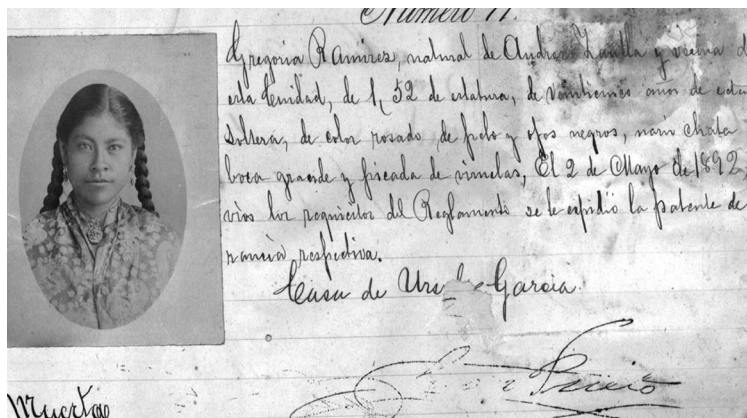 Número 11.
Gregoria Ramirez, natural de Andres y vecina d
esta Ciudad, de 1, 52 de estatura, de veinticinco años de eda
soltera, de color rosado, de pelo y ojos negros, nariz chata
boca grande y picada de viruelas, El 2 de Mayo de 1892,
vios los requisitos del Reglamento se le espidió la patente de
rancia respectiva.
Casa de García.
Muerta